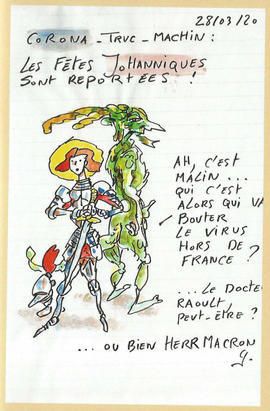 28/03/20
CORONA_TRUC_MACHIN :
LES FÊTES JOHANNIQUES
SONT REPORTÉES !
AH, C'EST
MALIN...
QUI C'EST
ALORS QUI VA
BOUTER
LE VIRUS
HORS DE
FRANCE ?
...LE DOCTE
RAOULT,
PEUT-ÊTRE ?
... OU BIEN HERR MACRON
G.